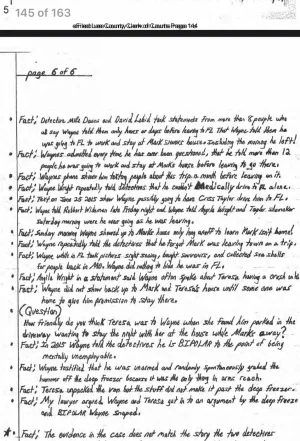 5 145 of 163
page 6 of 6
Fact; Detective Mike Downs and David Lebid took statements from more than 8 people who
all say Wayne told them only hours or days before leaving to FL That Wayne told them he
was going to FL to work and stay at Mark house. Including the morning he left!
Fact; Waynes admitted every time he has ever been questioned, that he told more than 12
people he was going to work and stay at Marks house before leaving to go there.
Fact; Waynes phone show him texting people about this trip a month before leaving on it.
Fact; Wayne Wright repeatedly told detectives that he couldn't Medically drive to FL alone.
Fact; Text on June 25 2015 show Wayne possibly going to have Cress Taylor drive him to FL.
Fact; Wayne told Robert Wikman late Friday night and Wayne told Angie Wright and Taylor Shomaker
Saturday morning were he was going as he was leaving.
Fact; Sunday morning Wayne showed up to Marks home only long enough to learn Mark isn't home!
Fact; Wayne repeatedly told the detectives that he forgot Mark was leaving town on a trip.
Fact; Wayne while in FL took pictures, sight seeing, bought souvenirs, and collected sea shells
for people back in MO. Wayne did nothing to hide he was in FL.
Fact; Angie Wright in a statement said Wayne often spoke about Teresa having a crush on him
Fact; Wayne did not show back up to Mark and Teresa's house until some one was
home to give him permission to stay there.
(Question)
How friendly do you think Teresa was to Wayne when she found him parked in the
driveway wanting to stay the night with her at the house while Marks away?
Fact; In 2015 Wayne told the detectives he is BIPOLAR to the point of being
mentally unemployable.
Fact; Wayne testified that he was unarmed and randomly spontaneously grabed the
hammer off the deep freezer because it was the only thing in arms reach.
Fact; Teresa unpacked the van but the stuff did not make it past the deep freezer.
Fact; My lawyer argued, Wayne and Teresa got in to an argument by the deep freeze
and BIPOLAR Wayne snaped.
Fact; The evidence in the case does not match the story the two detectives